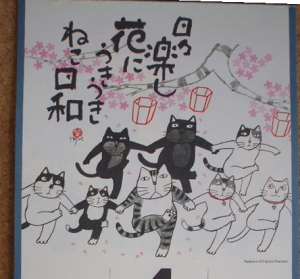 日々
楽し
花に
うきうき
ねこ日和